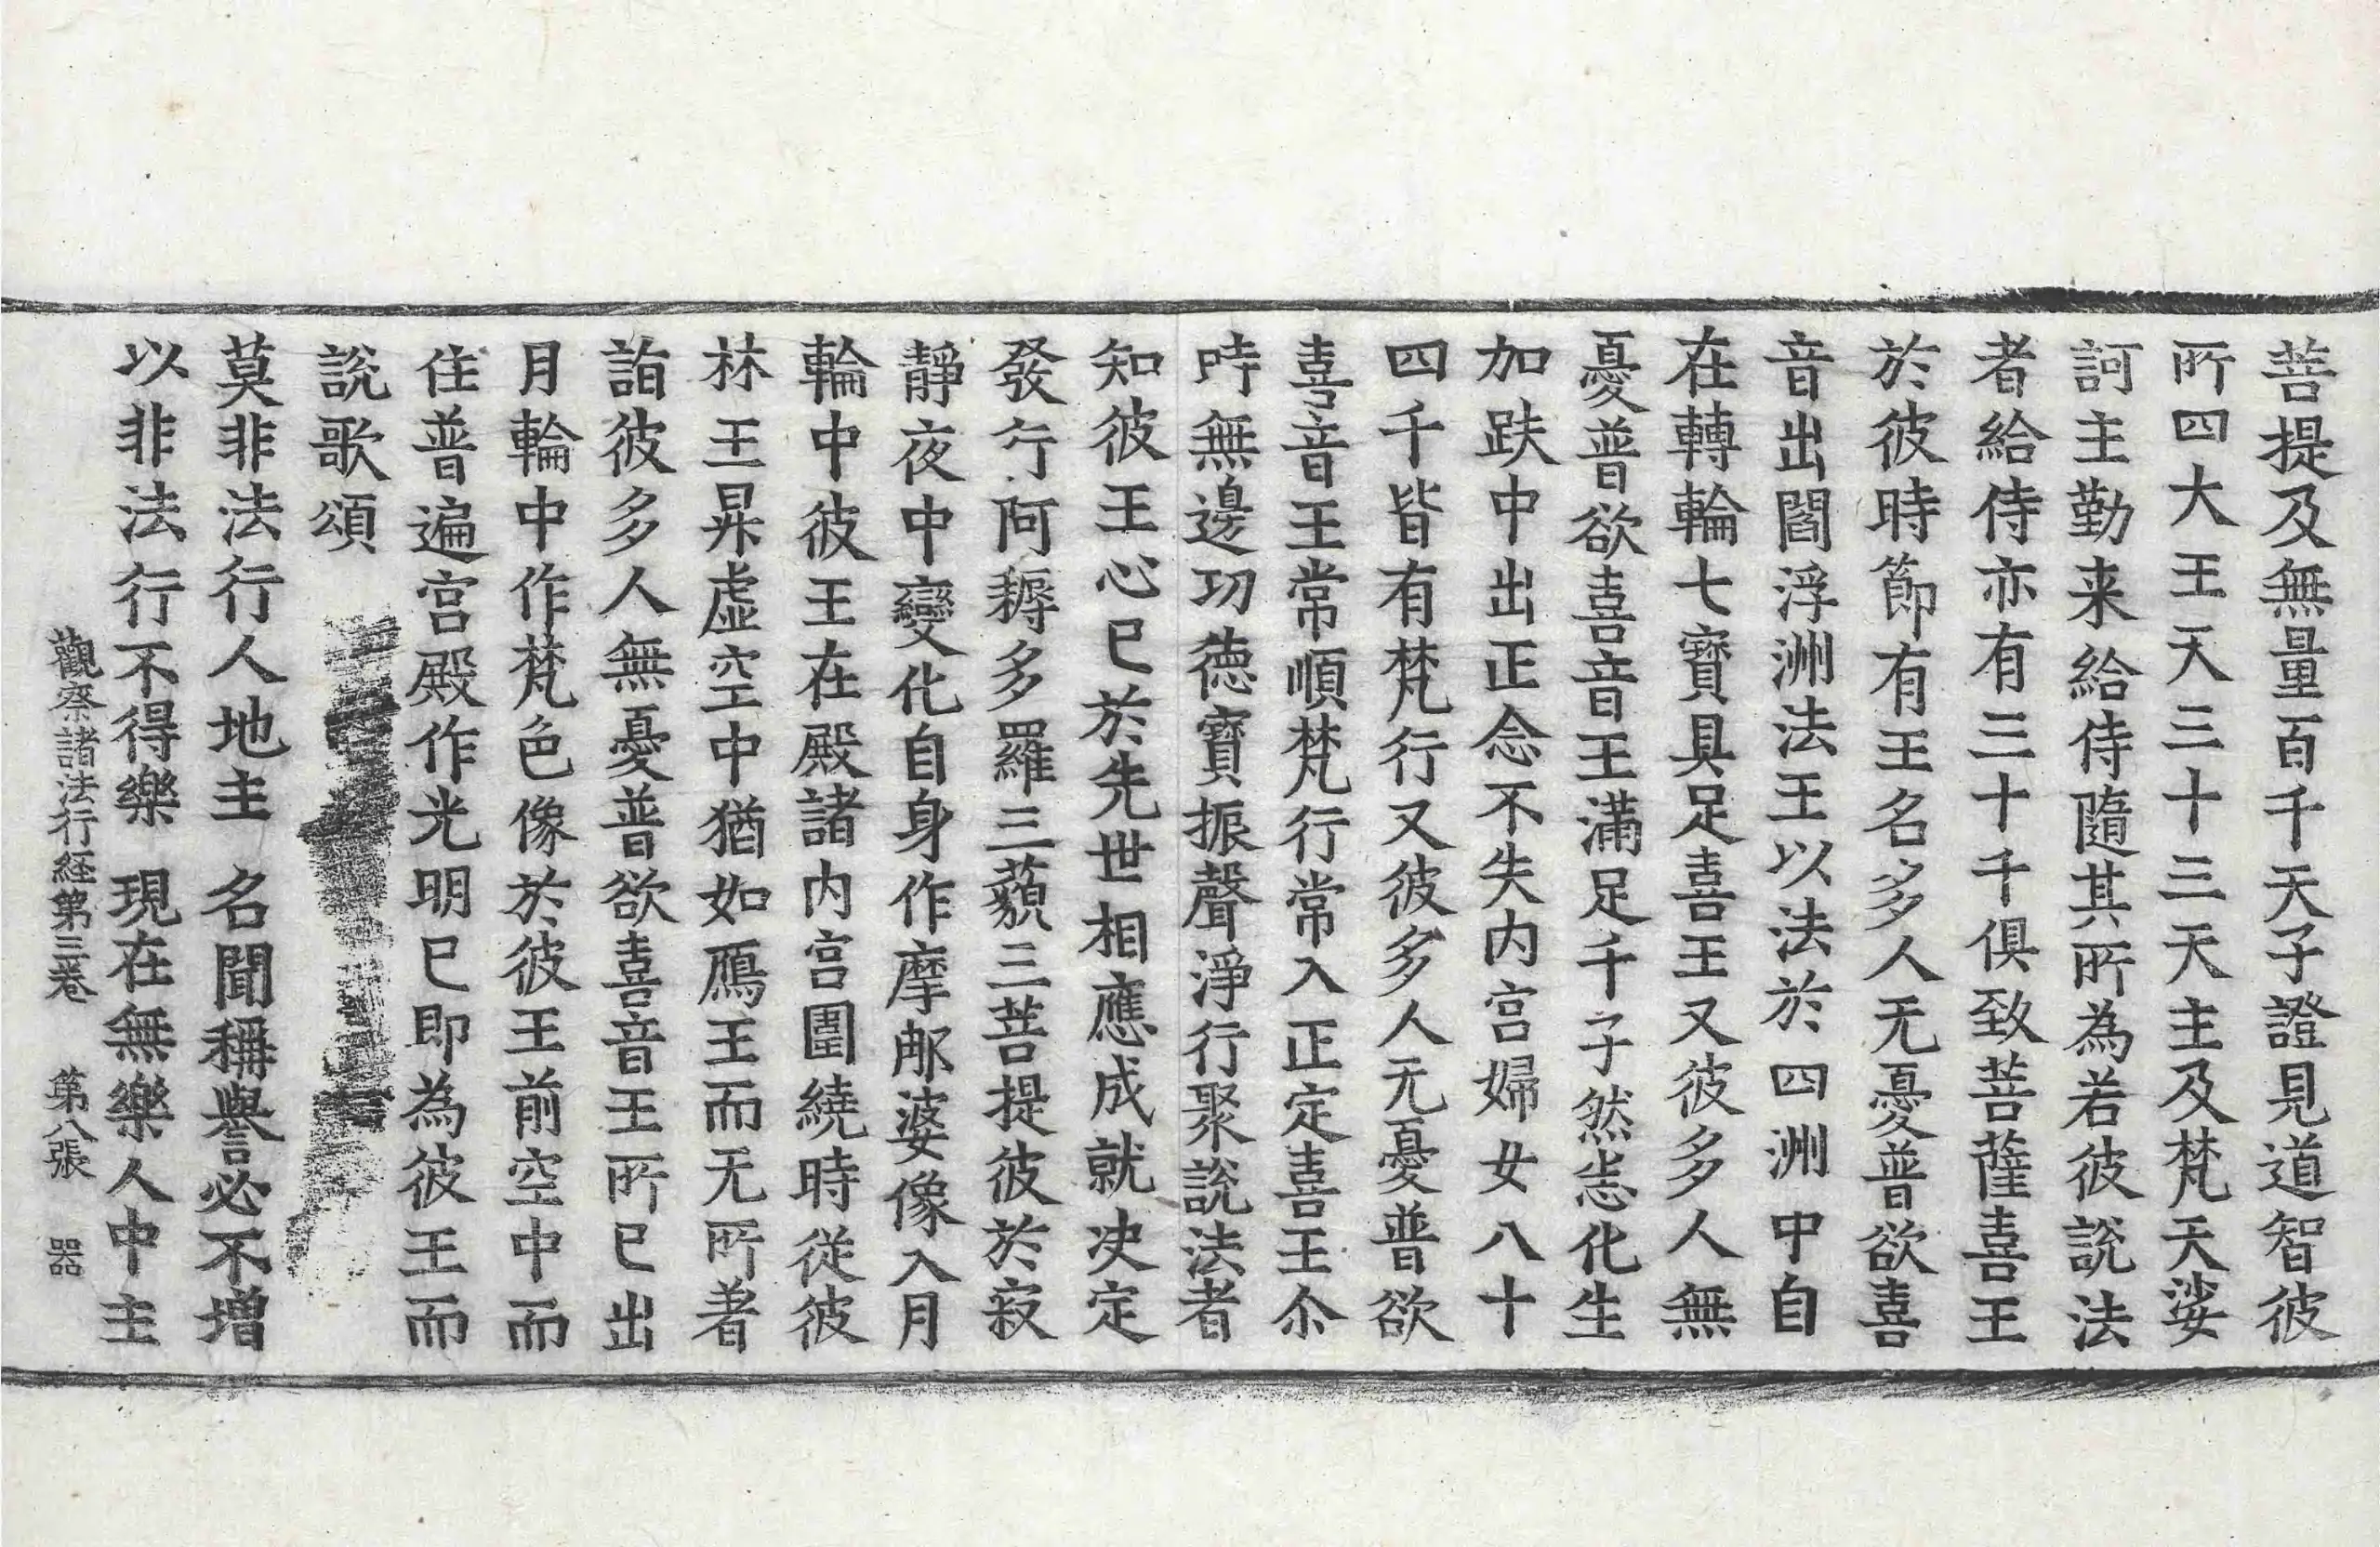 菩提及無量百千天子證見道智彼
所四大王天三十三天主及梵天娑
訶主勤来給侍隨其所為若彼說法
者給侍亦有三十千俱致菩薩喜王
於彼時節有王名多人无憂普欲喜
音出閻浮洲法王以法於四洲中自
在轉輪七寶具足喜王又彼多人無
憂普欲喜音王滿足千子然恙化生
加趺中出正念不失内宫婦女八十
四千皆有梵行又彼多人无憂普欲
喜音王常順梵行常入正定喜王尒
時無邊功德寶振聲淨行聚說法者
知彼王心已於先世相應成就决定
發行阿耨多羅三藐三菩提彼於寂
靜夜中變化自身作摩那婆像入月
輪中彼王在殿諸内宫圍繞時從彼
林王昇虛空中猶如鴈王而无所著
詣彼多人無憂普欲喜音王所已出
月輪中作梵色像於彼王前空中而
住普遍宫殿作光明已即為彼王而
說歌頌
莫非法行人地主 名聞稱譽必不增
以非法行不得樂 現在無樂人中主
觀察諸法行経第三卷 第八張 器